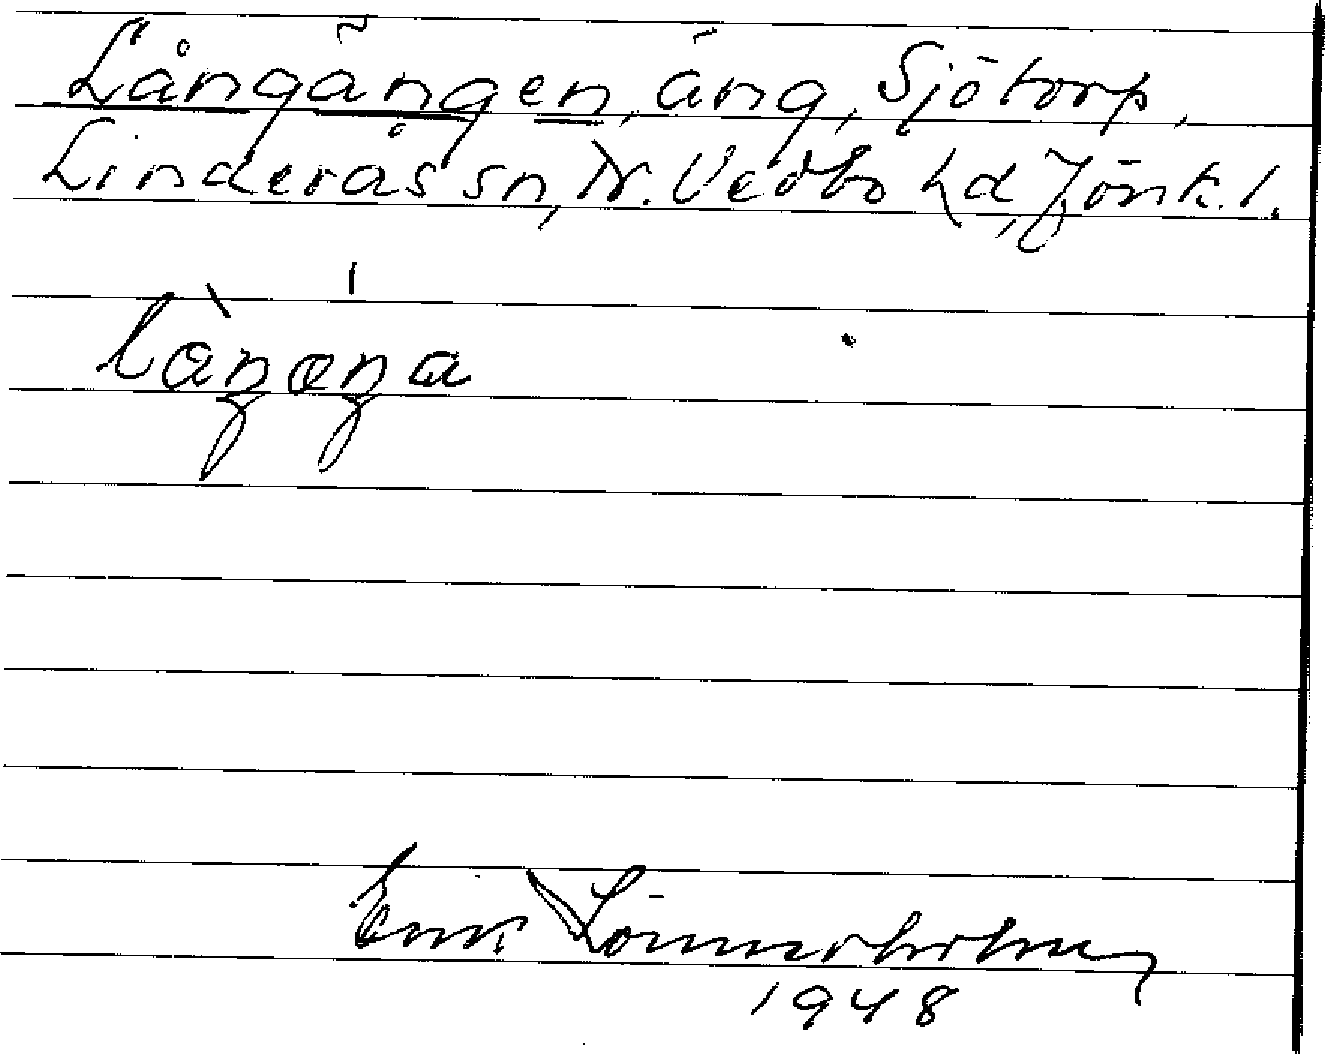 Långängen, äng, Sjötorp,
Linderås sn, N. Vedbo hd, Jönk. l.
làŋáŋa
Erik Lönnerholm
1948